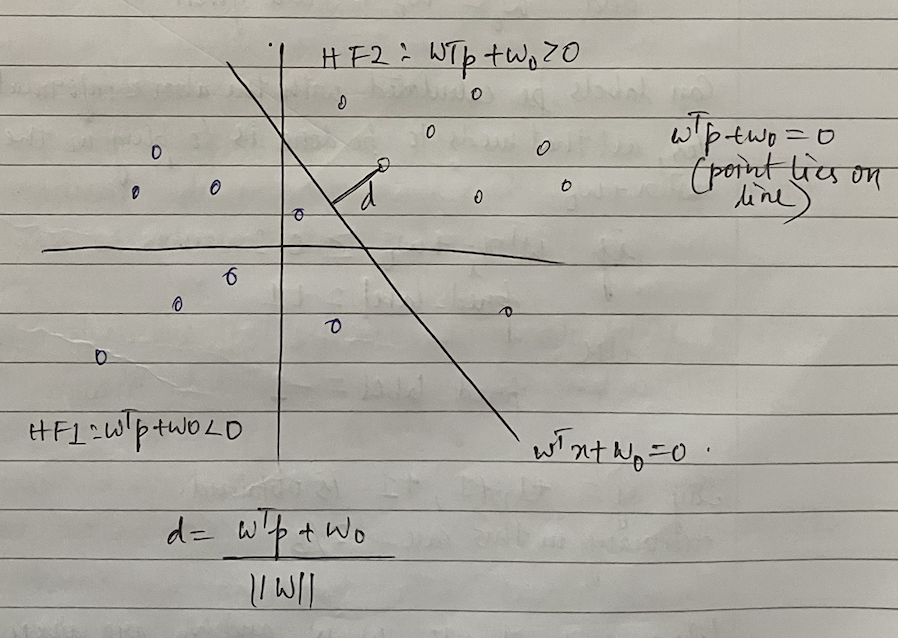 HF2: wᵀp + w₀ > 0
wᵀp + w₀ = 0
(point lies on
line)
d
HF1: wᵀp + w0 < 0
wᵀx + w₀ = 0.
d = wᵀp + w₀
||w||